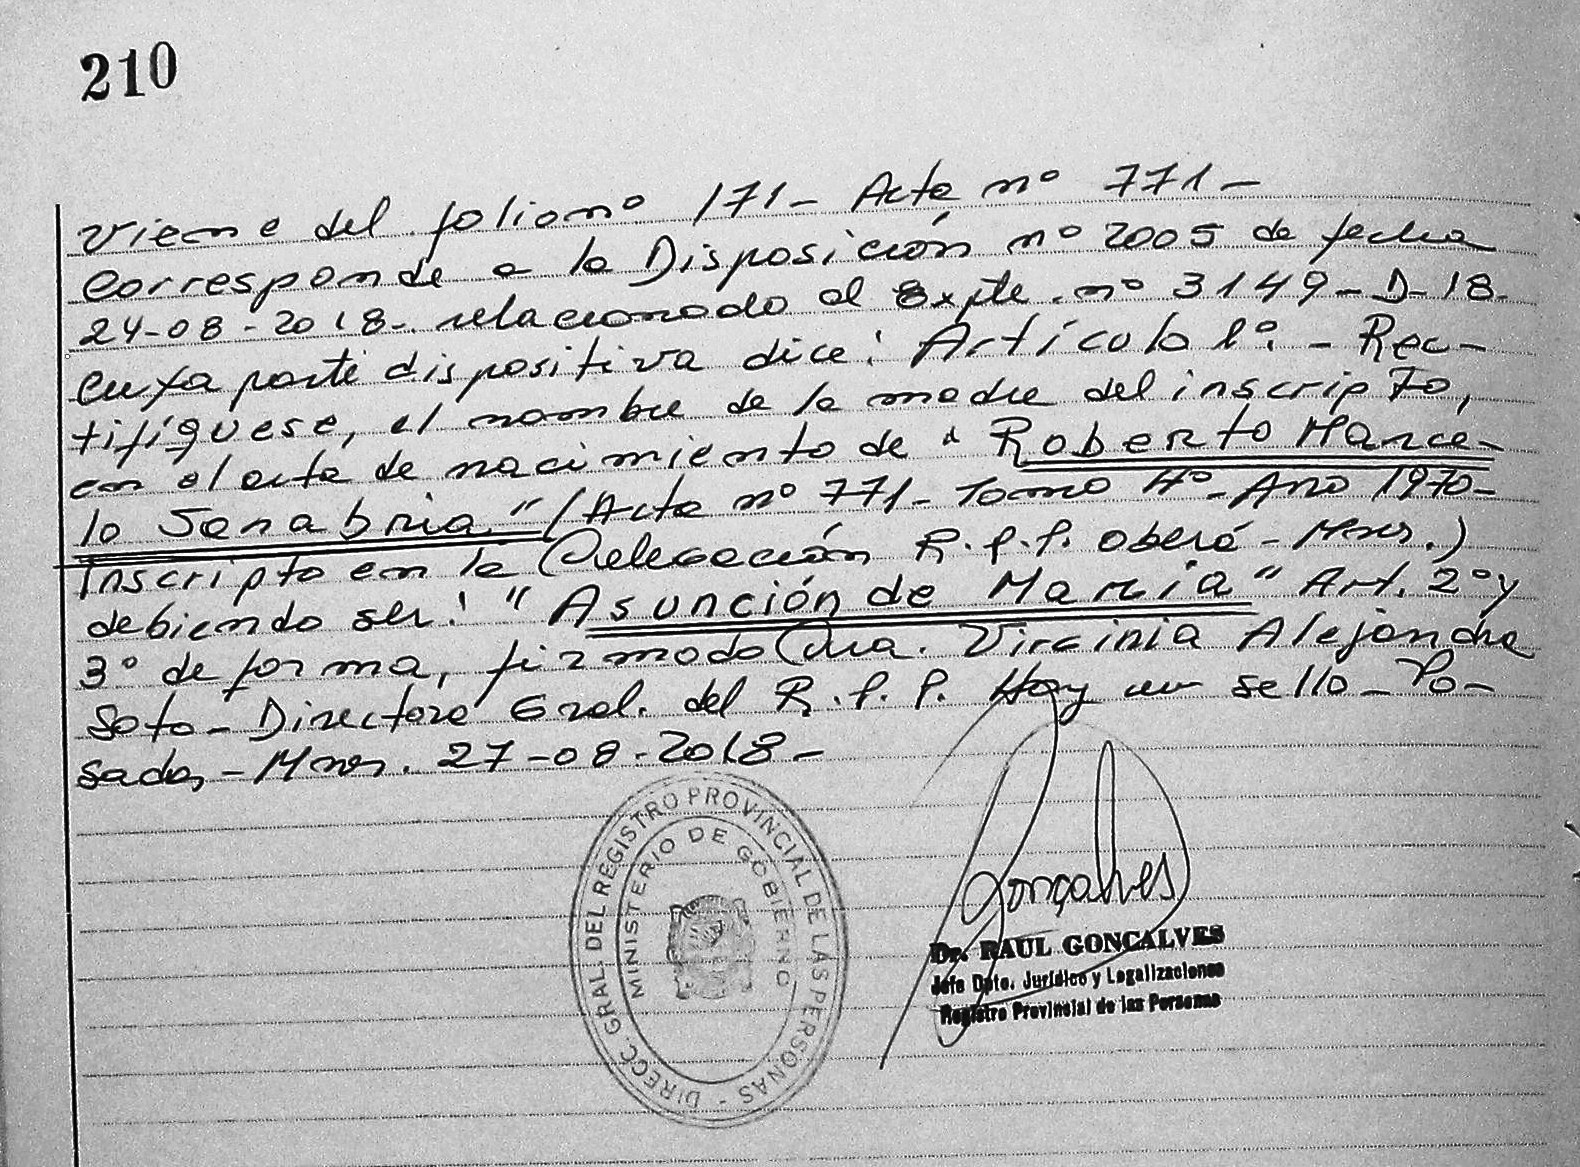 210
Viene del folio nº 171- Acta nº 771-
Corresponde a la Disposición nº 2005 de fecha
24-08-2018- relacionado al Expte. nº 3149-D-18.
cuya parte dispositiva dice: Artículo 1º. - Rec-
tifíquese, el nombre de la madre del inscripto,
en el acta de nacimiento de "Roberto Marce-
lo Sanabria" (Acta nº 771- Tomo 4º- Año 1970-
Inscripto en la Delegación R.P.P. Oberá - Mnes.)
debiendo ser: "Asunción de María" Art. 2º y
3º de forma, firmado Dra. Virginia Alejandra
Soto - Directora Gral. del R.P.P. Hay un sello - Po-
sadas - Mnes. 27-08-2018-
DIRECC. GRAL. DEL REGISTRO PROVINCIAL DE LAS PERSONAS -
MINISTERIO DE GOBIERNO
Gonçalves
Dr. RAUL GONCALVES
Jefe Dpto. Jurídico y Legalizaciones
Registro Provincial de las Personas